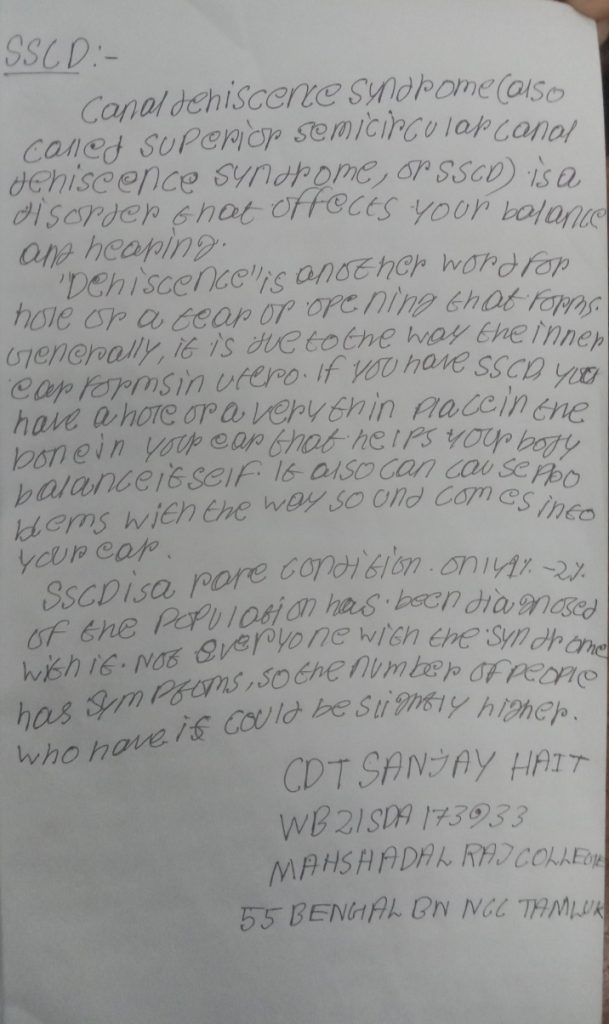 SSCD:-
Canal dehiscence syndrome (also
called superior semicircular canal
dehiscence syndrome, or SSCD) is a
disorder that affects your balance
and hearing.
"Dehiscence" is another word for
hole or a tear or opening that forms.
Generally, it is due to the way the inner
ear forms in utero. If you have SSCD, you
have a hole or a very thin place in the
bone in your ear that helps your body
balance itself. It also can cause pro
blems with the way sound comes into
your ear.
SSCD is a rare condition. only 1% -2%
of the population has been diagnosed
with it. Not everyone with the syndrome
has symptoms, so the number of people
who have it could be slightly higher.
CDT SANJAY HAIT
WB21SDA173933
MAHSHADAL RAJ COLLEGE
55 BENGAL BN NCC TAMLUK